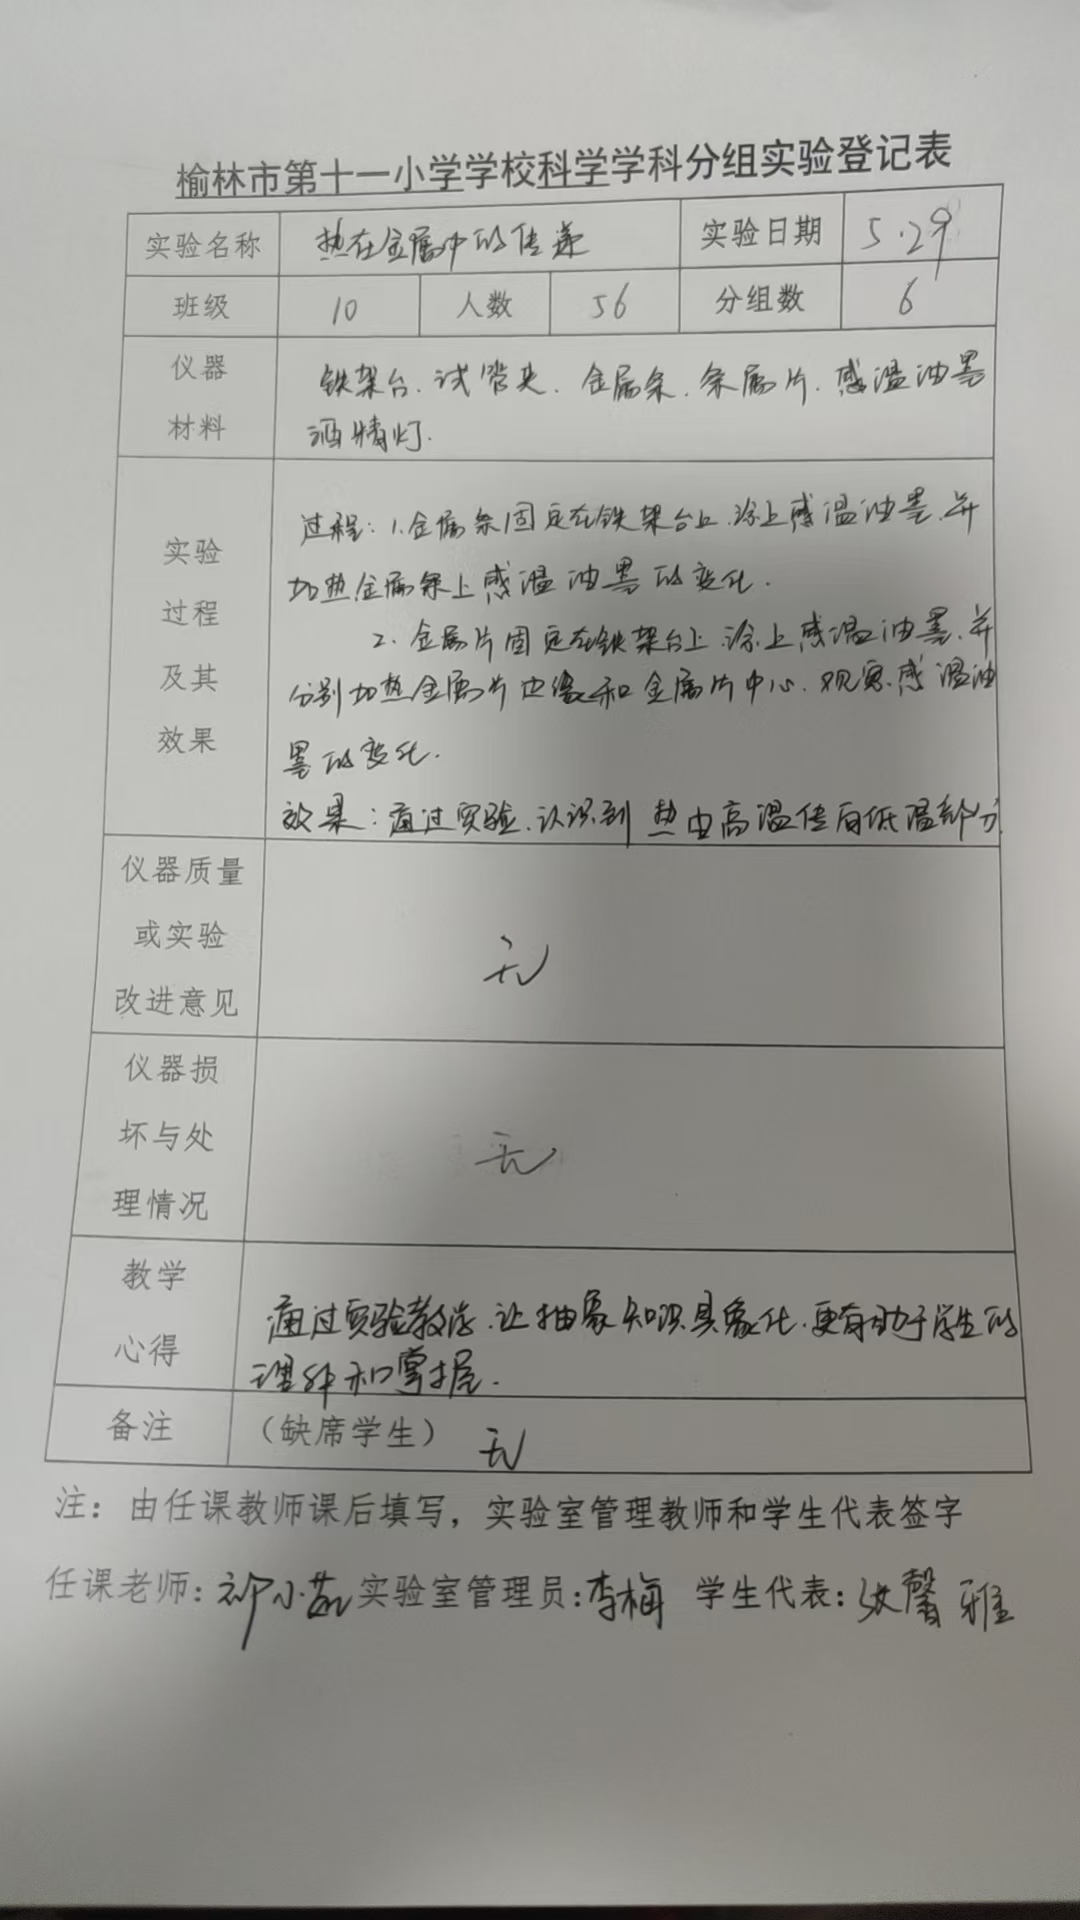 榆林市第十一小学学校科学学科分组实验登记表
实验名称 热在金属中的传递 实验日期 5.29
班级 10 人数 56 分组数 6
仪器材料
铁架台.试管夹.金属条.条属片.感温油墨
酒精灯.
实验过程及其效果
过程:1.金属条固定在铁架台上.涂上感温油墨.并
加热金属条上感温油墨的变化.
2.金属片固定在铁架台上.涂上感温油墨.并
分别加热金属片边缘和金属片中心.观察感温油
墨的变化.
效果:通过实验.认识到热由高温传向低温部分
仪器质量或实验改进意见
无
仪器损坏与处理情况
无
教学心得
通过实验教学.让抽象知识具象化.更有助于学生的
理解和掌握.
备注 (缺席学生) 无
注:由任课教师课后填写,实验室管理教师和学生代表签字
任课老师: 实验室管理员:李梅 学生代表:馨雅